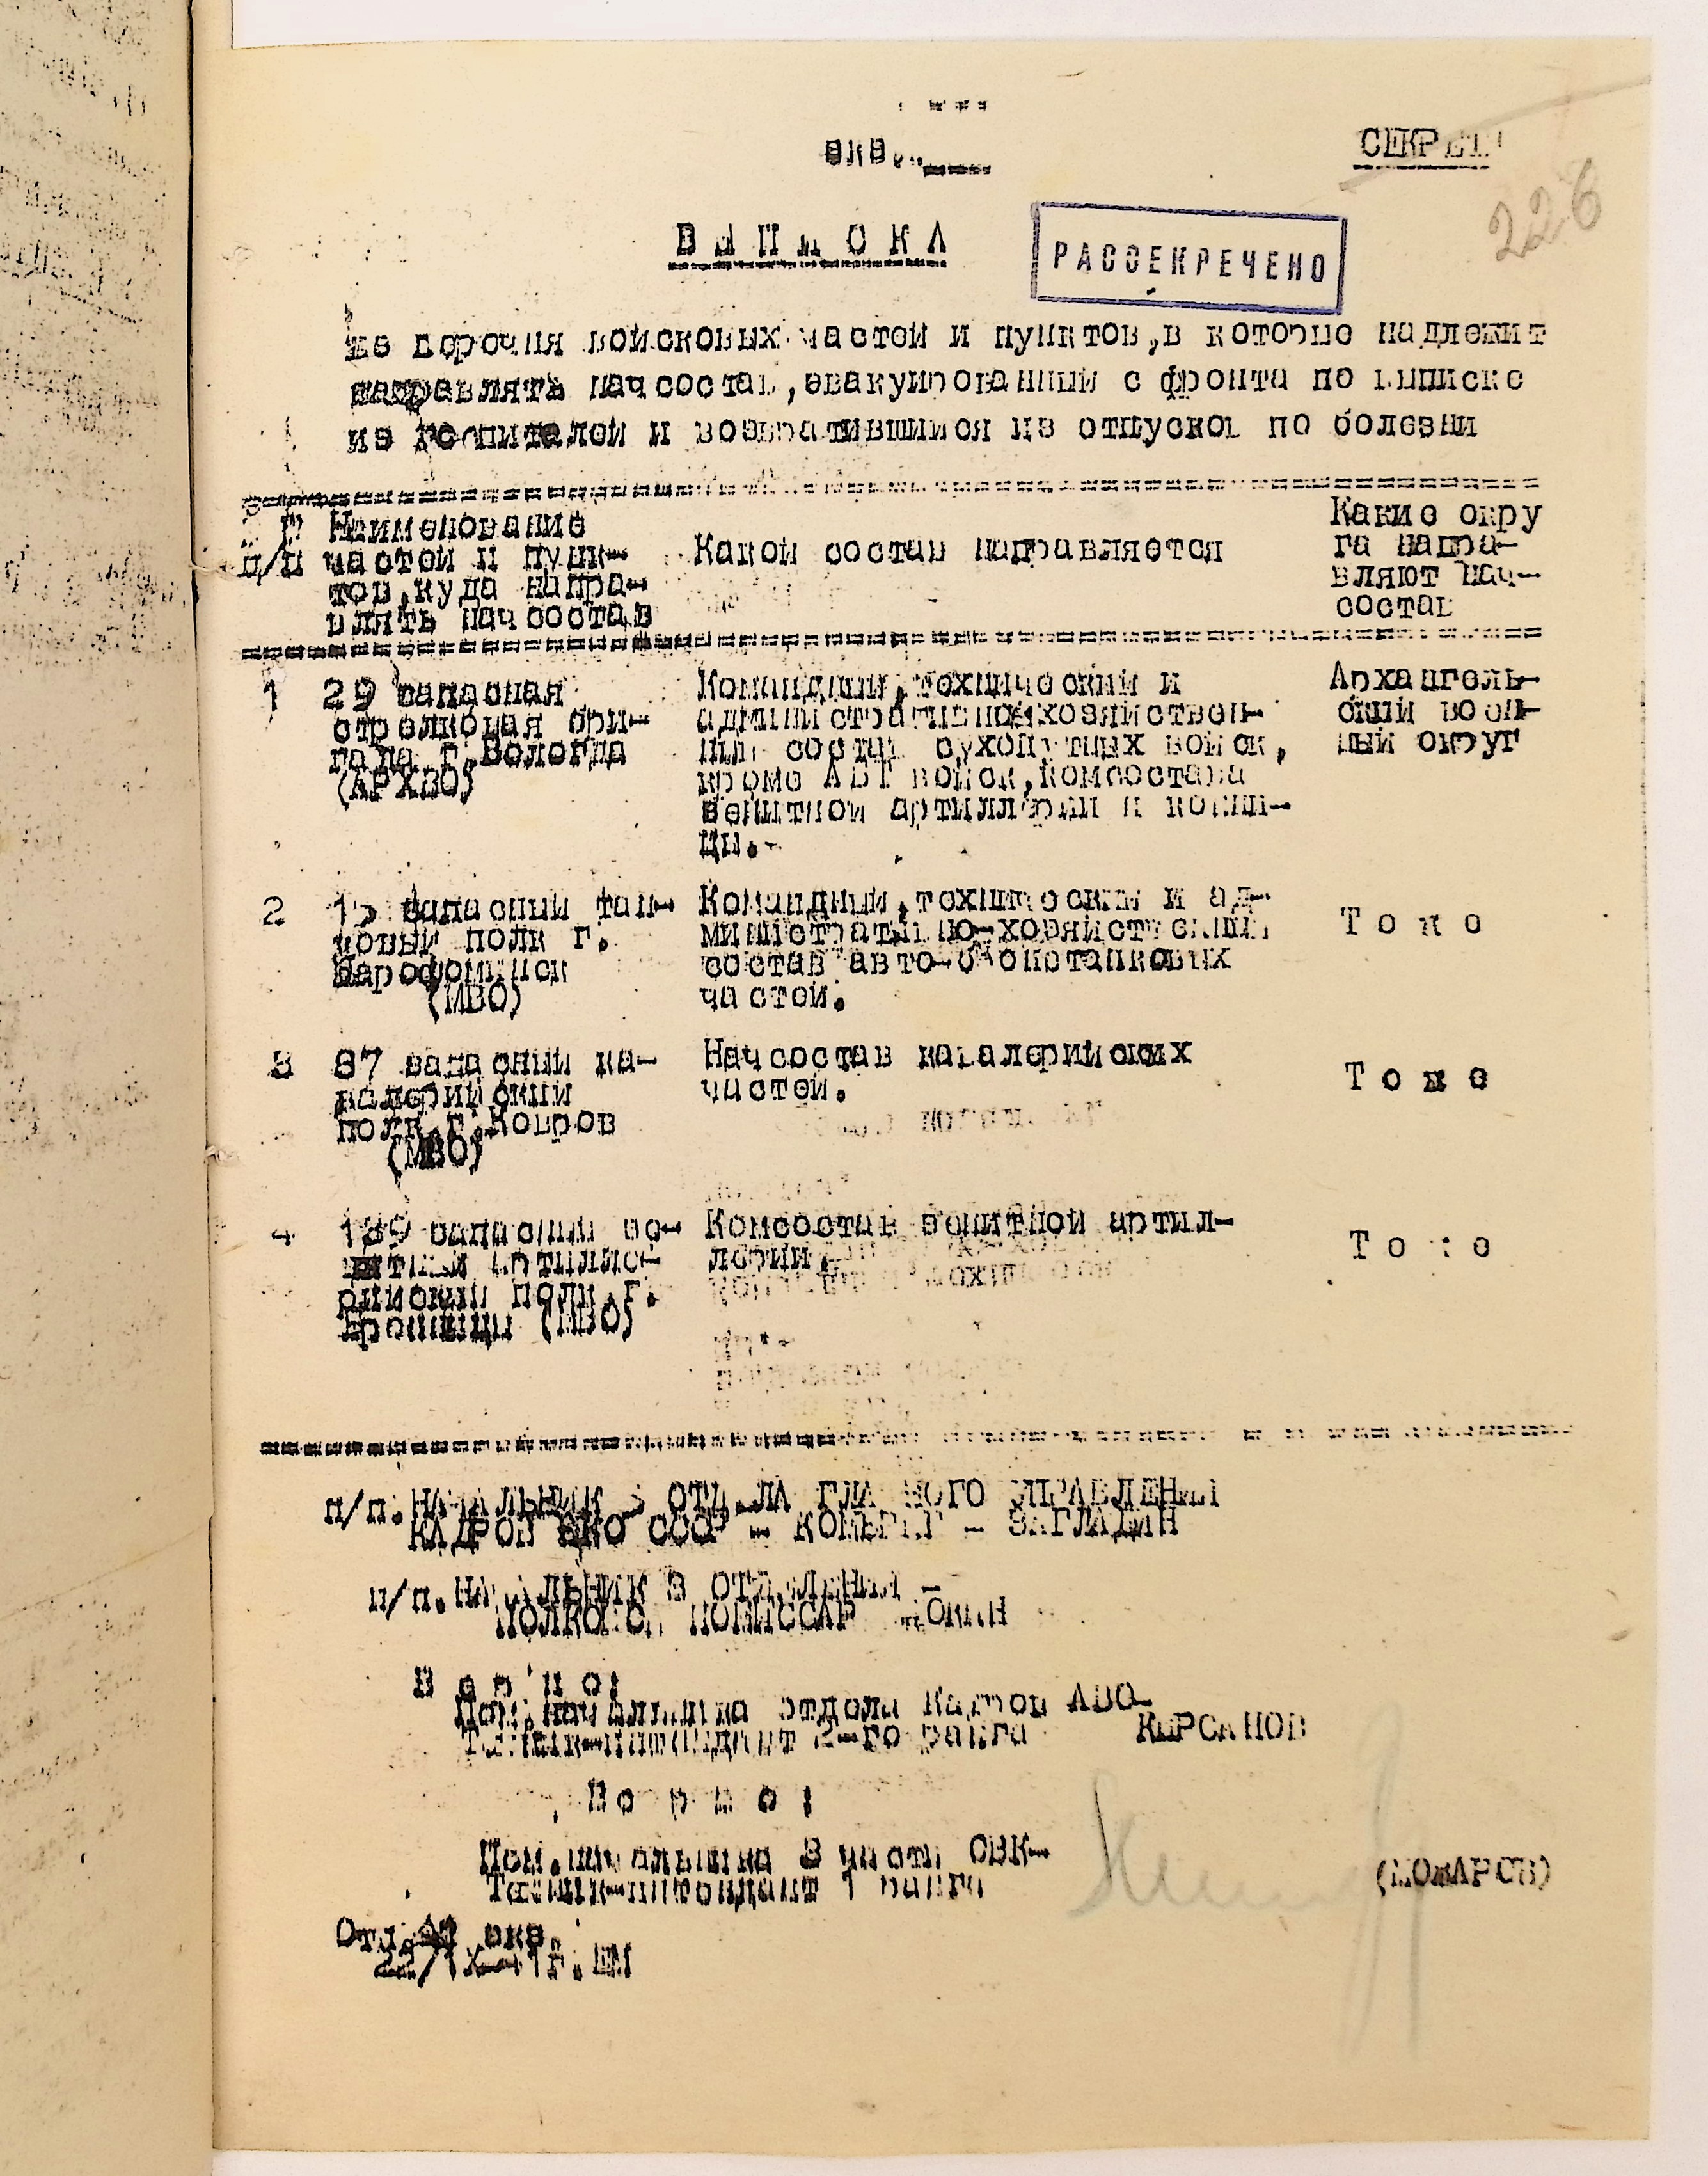 экз.
СЕКРЕТ
226
В Ы П И С К А
РАССЕКРЕЧЕНО
из перечня войсковых частей и пунктов,в которые надлежит
направлять начсостав,эвакуированный с фронта по выписке
из госпиталей и возвратившийся из отпусков по болезни
п/п
Наименование
частей и пунк-
тов,куда напра-
влять начсостав
Какой состав направляется
Какие окру
га напра-
вляют нач-
состав
1
29 запасная
стрелковая бри-
гада г.Вологда
(АРХВО)
Командный,технический и
административно-хозяйствен-
ный состав сухопутных войск,
кроме АБТ войск,комсостава
зенитной артиллерии и конни-
цы.-
Архангель-
ский воен-
ный округ
2
15 запасный тан-
ковый полк г.
Нарофоминск
(МВО)
Командный,технический и ад-
министративно-хозяйственный
состав авто-бронетанковых
частей.
Т о ж е
3
87 запасный ка-
валерийский
полк г.Ковров
(МВО)
Начсостав кавалерийских
частей.
Т о ж е
4
запасный зе-
нитный артилле-
рийский полк г.
Бронницы (МВО)
Комсостав зенитной артил-
лерии.
Т о ж е
п/п.НАЧАЛЬНИК ОТДЕЛА ГЛАВНОГО УПРАВЛЕНИЯ
КАДРОВ НКО СССР - КОМБРИГ - ЗАГЛАДИН
п/п.НАЧАЛЬНИК 3 ОТДЕЛЕНИЯ -
ПОЛКОВОЙ КОМИССАР
В е р н о:
Пом.начальника отдела кадров АВО-
Техник-интендант 2-го ранга КИРСАНОВ
В е р н о :
Пом.начальника 3 части ОВК-
Техник-интендант 1 ранга (КОМАРОВ)
Отп. экз.
22/IX-41г.